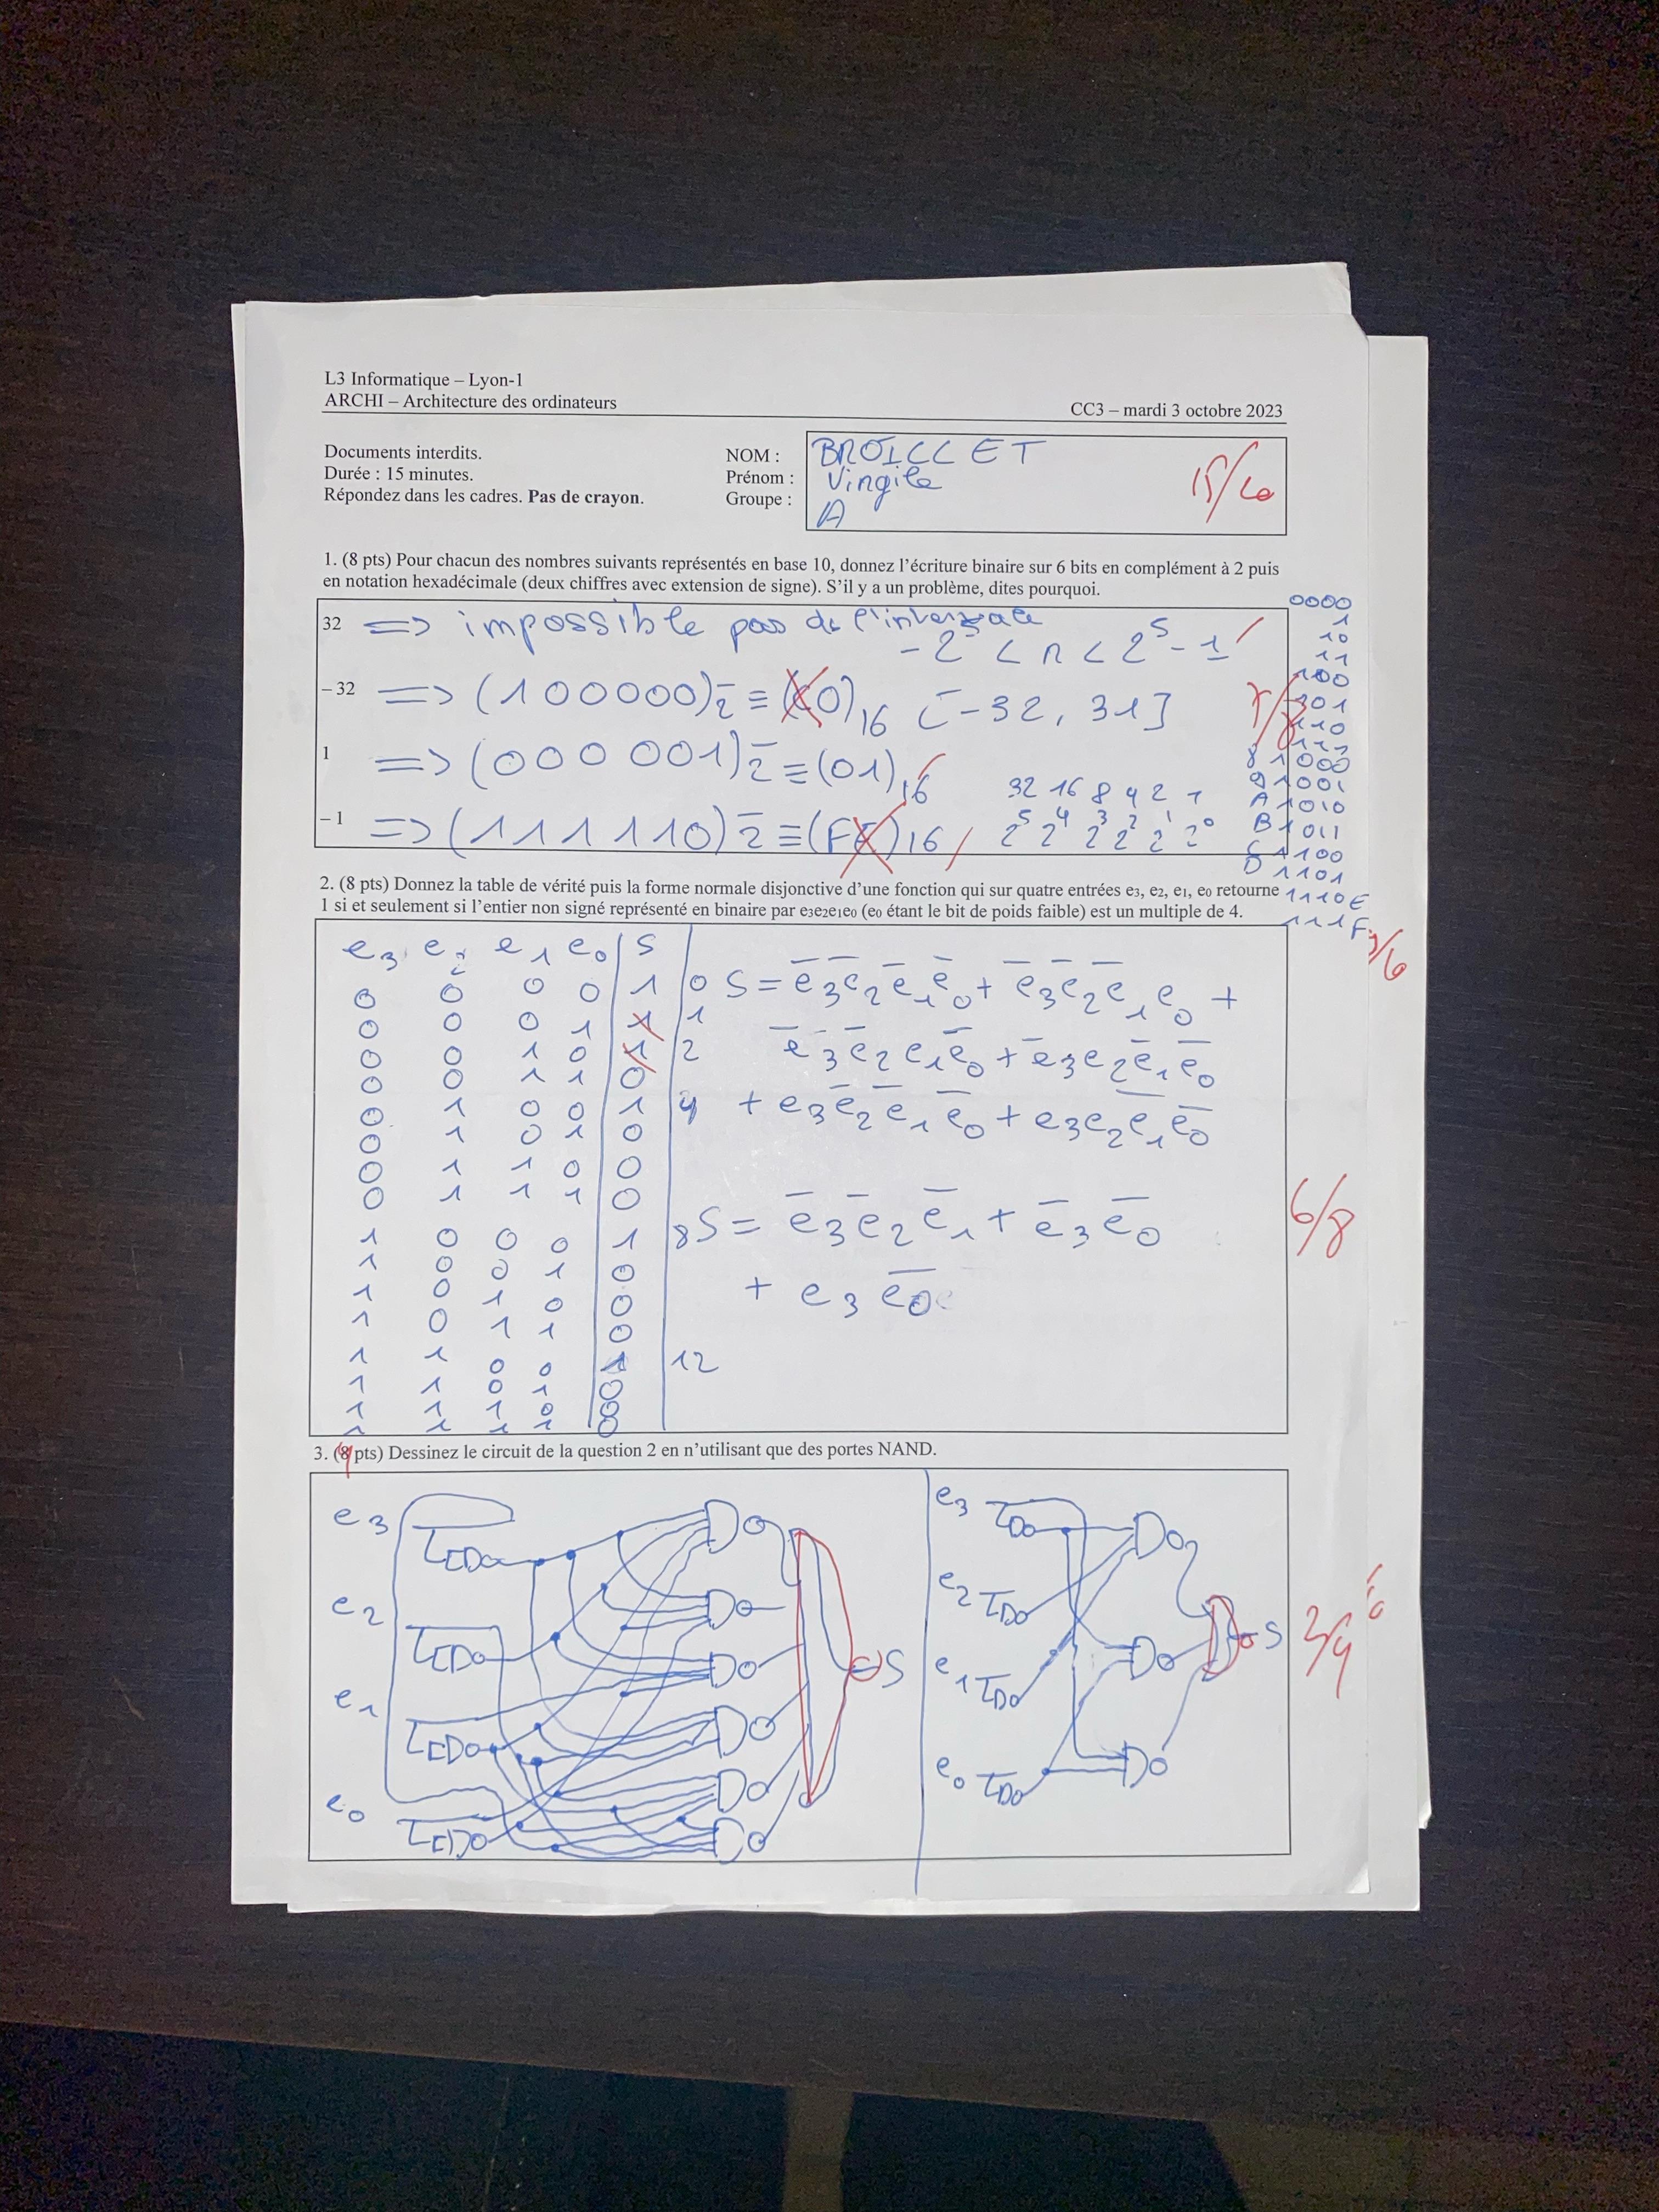 L3 Informatique – Lyon-1
ARCHI – Architecture des ordinateurs
CC3 – mardi 3 octobre 2023
Documents interdits.
Durée : 15 minutes.
Répondez dans les cadres. Pas de crayon.
NOM : BROILLET
Prénom : Virgile
Groupe : A
15/20
1. (8 pts) Pour chacun des nombres suivants représentés en base 10, donnez l'écriture binaire sur 6 bits en complément à 2 puis
en notation hexadécimale (deux chiffres avec extension de signe). S'il y a un problème, dites pourquoi.
32 => impossible pas de l'intervale
-2⁵ < n < 2⁵ - 1
-32 => (100000)₂̅ ≡ ( 0)₁₆ [-32, 31]
1 => (000 001)₂̅ ≡ (01)₁₆
-1 => (111 110)₂̅ ≡ (FE)₁₆
32 16 8 4 2 1
2⁵ 2⁴ 2³ 2² 2¹ 2⁰
0000
1
10
11
100
101
110
111
8 1000
9 1001
A 1010
B 1011
C 1100
D 1101
1110 E
1111 F
2. (8 pts) Donnez la table de vérité puis la forme normale disjonctive d'une fonction qui sur quatre entrées e₃, e₂, e₁, e₀ retourne
1 si et seulement si l'entier non signé représenté en binaire par e₃e₂e₁e₀ (e₀ étant le bit de poids faible) est un multiple de 4.
e₃ e₂ e₁ e₀ S
0 0 0 0 1 0
0 0 0 1 1 1
0 0 1 0 1 2
0 0 1 1 0
0 1 0 0 1 4
0 1 0 1 0
0 1 1 0 0
0 1 1 1 0
1 0 0 0 1 8
1 0 0 1 0
1 0 1 0 0
1 0 1 1 0
1 1 0 0 1 12
1 1 0 1 0
1 1 1 0 0
1 1 1 1 0
S = e̅₃e̅₂e̅₁e̅₀ + e̅₃e̅₂e̅₁e₀ +
e̅₃e̅₂e₁e̅₀ + e̅₃e₂e̅₁e̅₀
+ e₃e̅₂e̅₁e̅₀ + e₃e₂e̅₁e̅₀
S = e̅₃e̅₂e̅₁ + e̅₃e̅₀
+ e₃e̅₀
6/8
3. (4 pts) Dessinez le circuit de la question 2 en n'utilisant que des portes NAND.
e₃
e₂
e₁
e₀
S
e₃
e₂
e₁
e₀
S